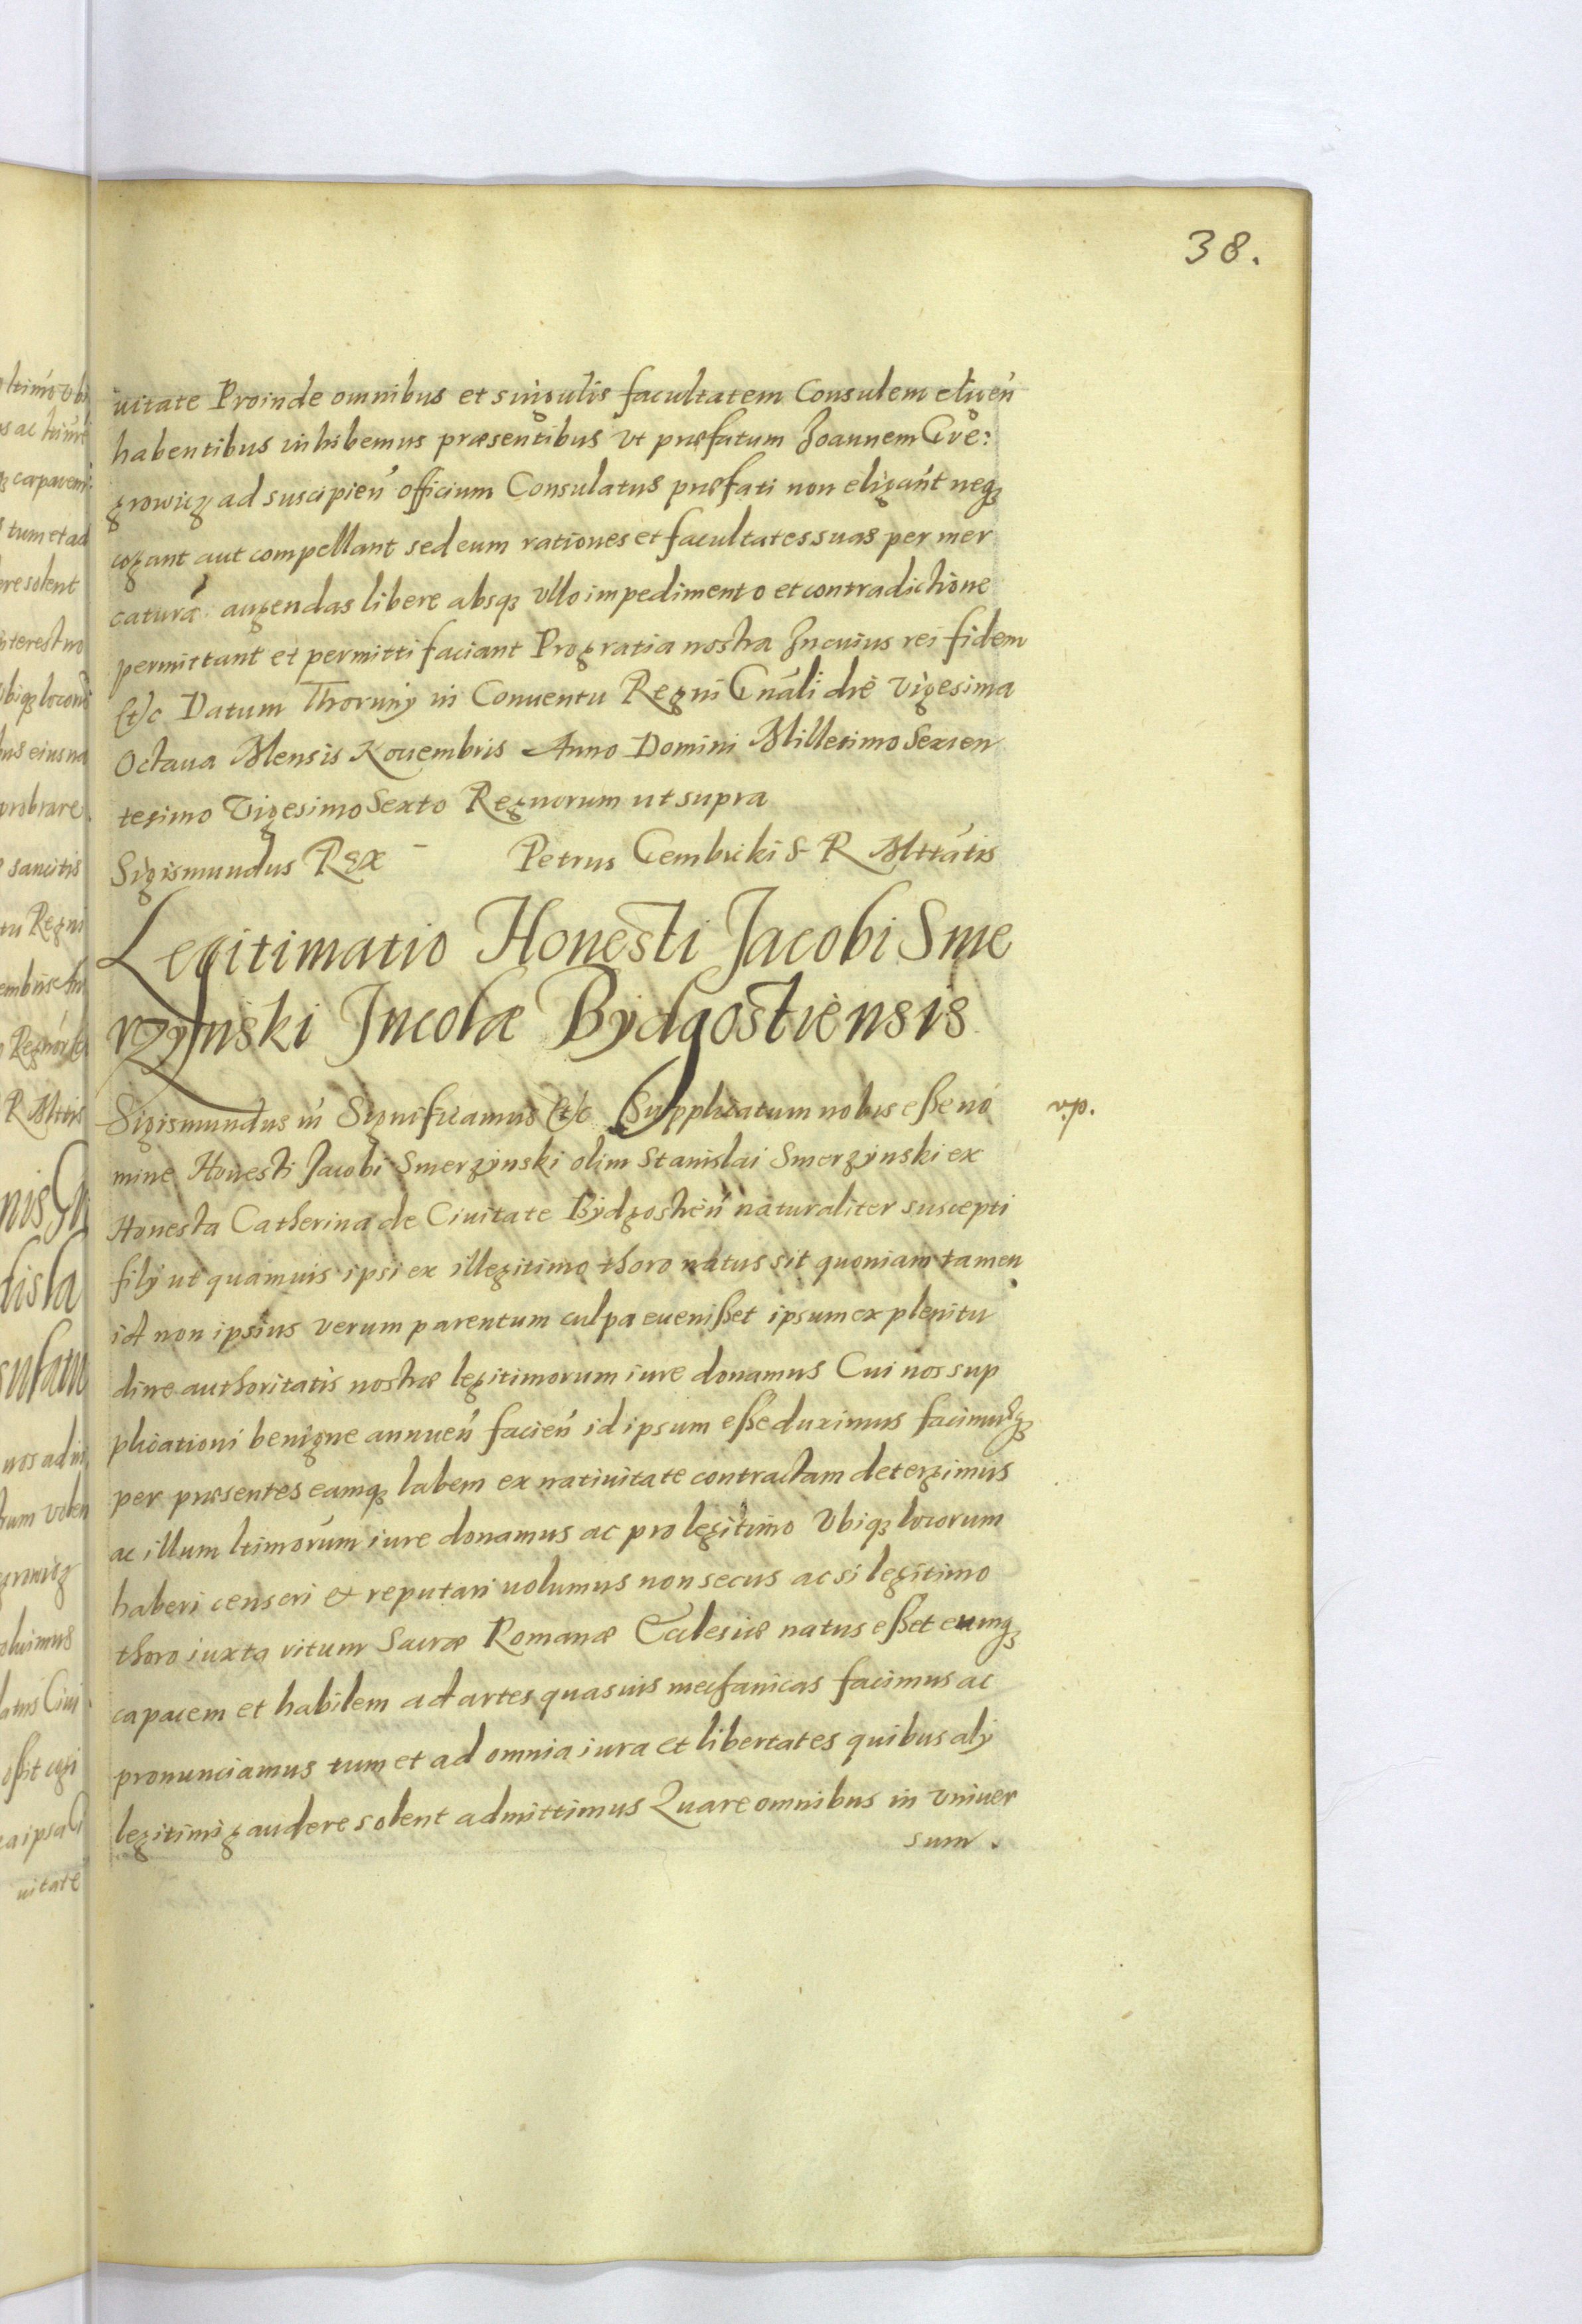 38.
uitate Proinde omnibus et singulis facultatem Consulem eligeń
habentibus inhibemus præsentibus vt præfatum Joannem Gre:
growicz ad suscipień officium Consulatus præfati non eligant neqȝ
cogant aut compellant sed eum rationes et facultates suas per mer
caturā augendas libere absqȝ vllo impedimento et contradictione
permittant et permitti faciant Pro gratia nostra In cuius rei fidem
(et)c Datum Thoruny in Conuentu Regni Gnáli die Vigesima
Octaua Mensis Nouembris Anno Domini Millesimo Sexcen
tesimo Vigesimo Sexto Regnorum ut supra
Sigismundus Rex Petrus Gembicki S R Mttátis
Legitimatio Honesti Jacobi Sme
rzynski Incolæ Bydgostiensis
Sigismundus iń Significamus (et)c Supplicatum nobis eße no
v.p.
mine Honesti Jacobi Smerzynski olim Stanislai Smerzynski ex
Honesta Catherina de Ciuitate Bydgostień naturaliter suscepti
filij ut quamuis ipsi ex illegitimo thoro natus sit quoniam tamen
id non ipsius verum parentum culpa euenißet ipsum ex plenitu
dine authoritatis nostræ legitimorum iure donamus Cui nos sup
plicationi benigne annueń facień id ipsum eße duximus facimusqȝ
per præsentes eamqȝ labem ex natiuitate contractam detergimus
ac illum ltimorúm iure donamus ac pro legitimo Vbiqȝ locorum
haberi censeri et reputari uolumus non secus ac si legitimo
thoro iuxta ritum Sacræ Romanæ Ecclesiæ natus eßet eumqȝ
capacem et habilem ad artes quasuis mechanicas facimus ac
pronunciamus tum et ad omnia iura et libertates quibus alij
legitimi gaudere solent admittimus Quare omnibus in vniuer
sum.